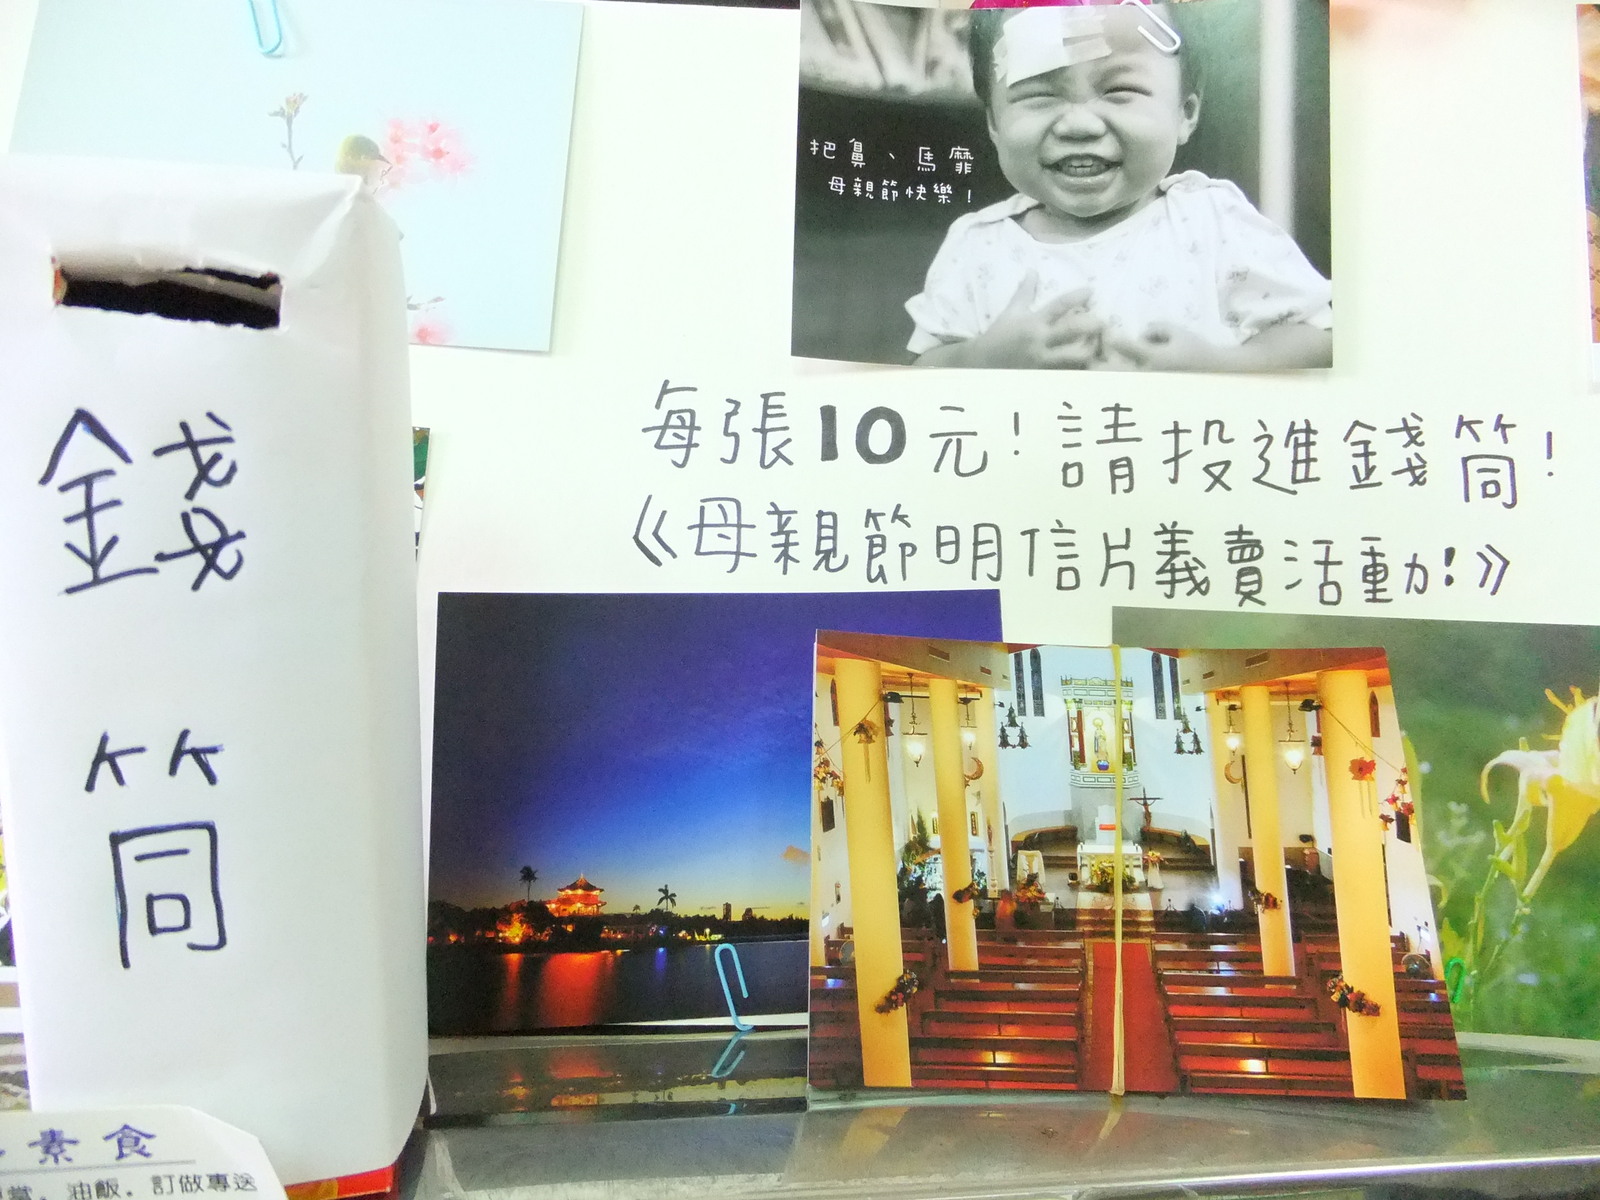 把鼻、馬麻
母親節快樂!
每張10元!請投進錢筒!
《母親節明信片義賣活動!》
錢
筒
素食
油飯.訂做專送